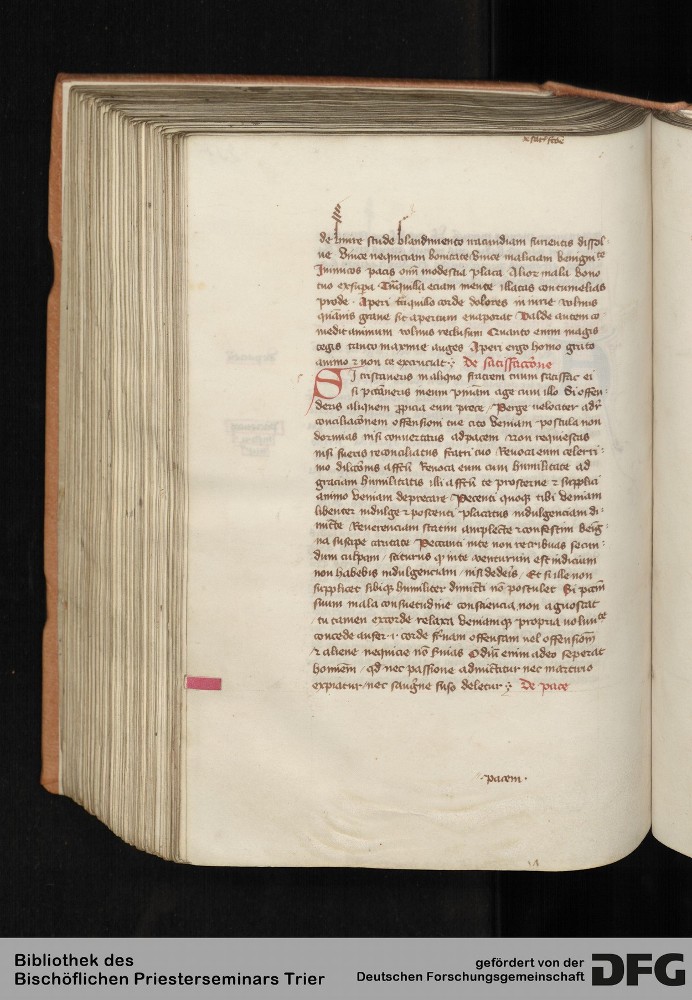 de linire stude blandimento iracundiam furientis dissol-
ue Vince nequiciam bonitate Vince maliciam benignite
Inimicos pacis omi modestia placa Alior mala bono
tuo exsupa Tnquilla eciam mente illatas contumelias
prode Aperi tnquillo corde dolores iniurie volnus
quauis graue sit apertum euaporat Valde autem co
medit animum volnus reclusum Quanto enim magis
tegis tanto maxime auges Aperi ergo homo grato
animo et non te excruciat De satisfaccone
Si tristaueris in aliquo fratrem tuum satisfac ei
si peccaueris meum pniam age cum illo Si offen-
deris aliquem ppicia eum prece Perge velociter ad
conciliaconem offensioni tue cito veniam postula non
dormias nisi conuertaris ad pacem non requiescas
nisi fueris reconciliatus fratri tuo Reuoca eum celerri-
mo dilcconis affectu Reuoca eum cum humilitate ad
graciam humilitatis illi affectu te prosterne et supplici
animo veniam deprecare Petenti quoq tibi veniam
libenter indulge et poscenti placatus indulgenciam di-
micte Reuerenciam statim amplecte et confestim beig-
na suscipe caritate Peccanti in te non retribuas secun-
dum culpam sciturus q in te venturum est iudicium
non habebis indulgenciam nisi dedeis Et si ille non
supplicet sibiq humiliter dimicti no postulet Si pccm
suum mala consuetudine consciencia non agnoscat
tu tamen ex corde relaxa veniamq propria volunte
concede aufer i corde fernam offensam vel offensiom
et aliene nequicie no seruias Odiu enim adeo seperat
hominem qd nec passione admictitur nec martirio
expiatur nec sangne fuso deletur De pace
pacem
Bibliothek des
Bischöflichen Priesterseminars Trier
gefördert von der
Deutschen Forschungsgemeinschaft
DFG